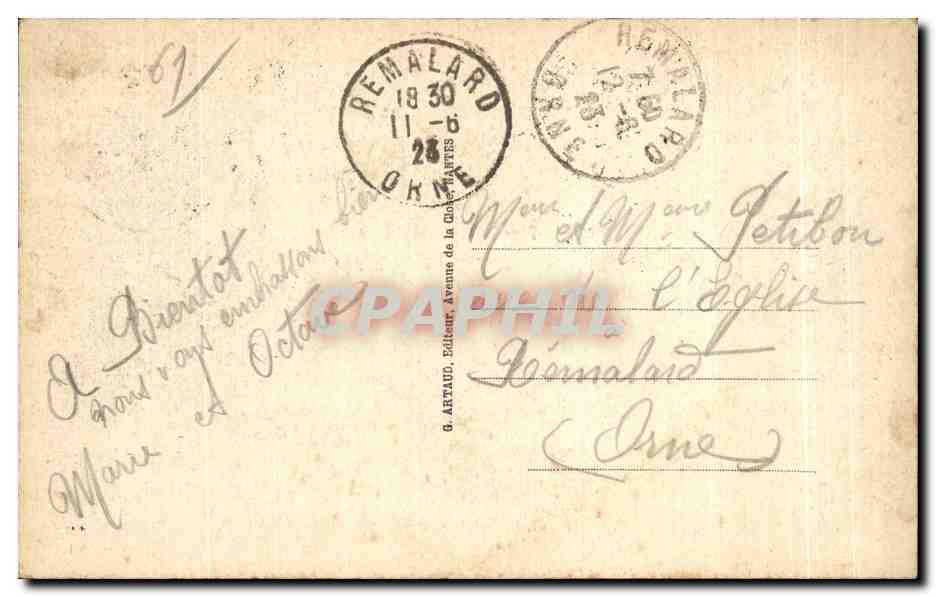 61
REMALARD
18 30
11 - 6
23
ORNE
REMALARD
7 30
12 - 6
23
ORNE
A Bientot
nous vous embrassons bien
Marie et Octave
G. ARTAUD, Editeur, Avenue de la Close, NANTES
et Petibon
l'église
Rémalard
(Orne)
CPAPHIL